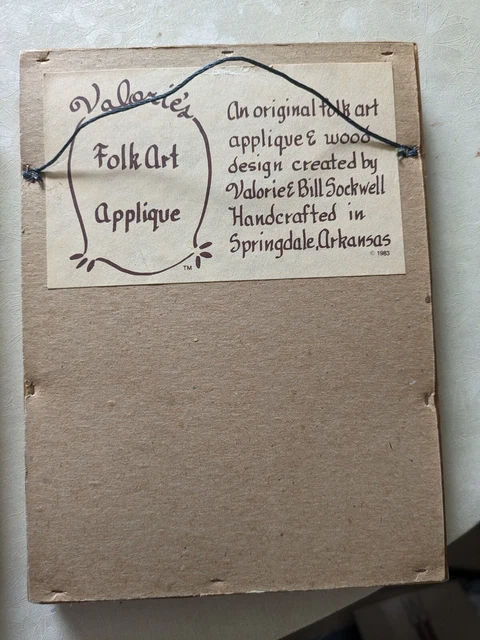 Valorie's
Folk Art
Applique
TM
An original folk art
applique & wood
design created by
Valorie & Bill Sockwell
Handcrafted in
Springdale, Arkansas
© 1983